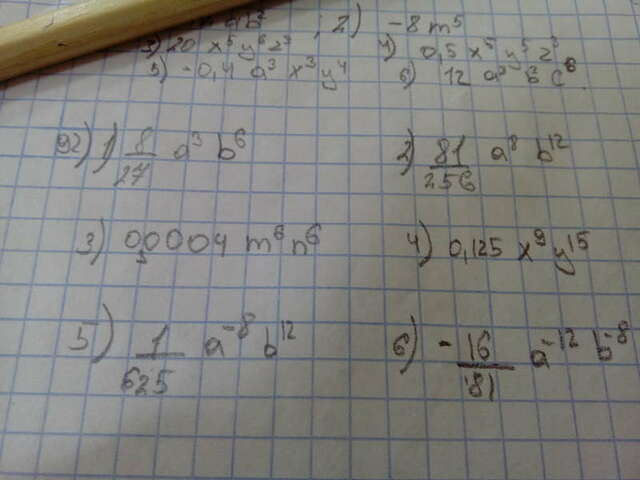 ; 2) -8 m⁵
3) 20 x⁵ y⁶ z³ 4) 0,5 x⁵ y⁵ z³
5) -0,4 a³ x³ y⁴ 6) 12 c⁶
92) 1) 8/27 a³ b⁶ 2) 81/256 a⁸ b¹²
3) 0,0004 m⁶ n⁶ 4) 0,125 x⁹ y¹⁵
5) 1/625 a⁻⁸ b¹² 6) -16/81 a⁻¹² b⁻⁸